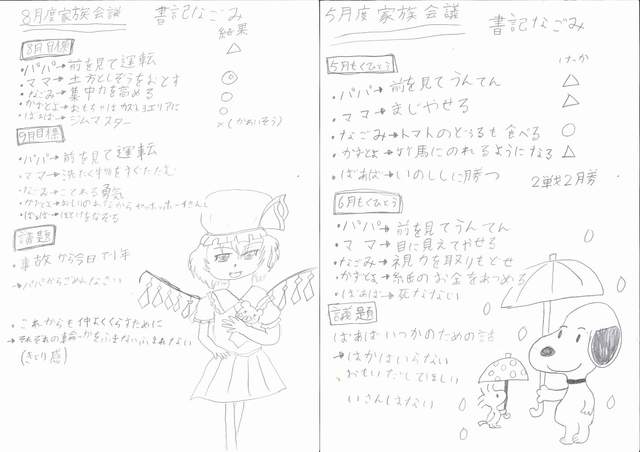 8月度家族会議
書記なごみ
結果
8月目標
・パパ→前を見て運転 △
・ママ→土方としそうをおとす ◎
・なごみ→集中力を高める ○
・かずとよ→おもちゃは エリアに ○
・ばぁば→ジムマスター ×(かわいそう)
9月目標
・パパ→前を見て運転
・ママ→洗たく物をすぐたたむ
・なごみ→こくれる勇気
・かずとよ→おしりのあなから
・ばぁば→ほとけをなぞる
議題
・事故から今日で1年
→パパからごめんなさい
・これからも仲よくくらすために
→それぞれの をふまないふまれない
(きょり感)
5月度家族会議
書記なごみ
けっか
5月もくひょう
・パパ→前を見てうんてん △
・ママ→まじやせる △
・なごみ→トマトのどろるも食べる ○
・かずとよ→竹馬にのれるようになる △
・ばぁば→いのししに勝つ 2戦2勝
6月もくひょう
・パパ→前を見てうんてん
・ママ→目に見えてやせる
・なごみ→視力を取りもどせ
・かずとよ→紙のお金をあつめる
・ばぁば→死なない
議題
ばぁばいつかのための話
→はかはいらない
おもいだしてほしい
いさんはない